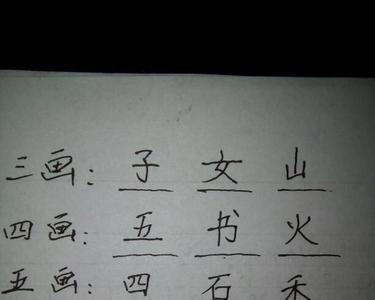 三画：子 女 山
四画：五 书 火
五画 四 石 禾